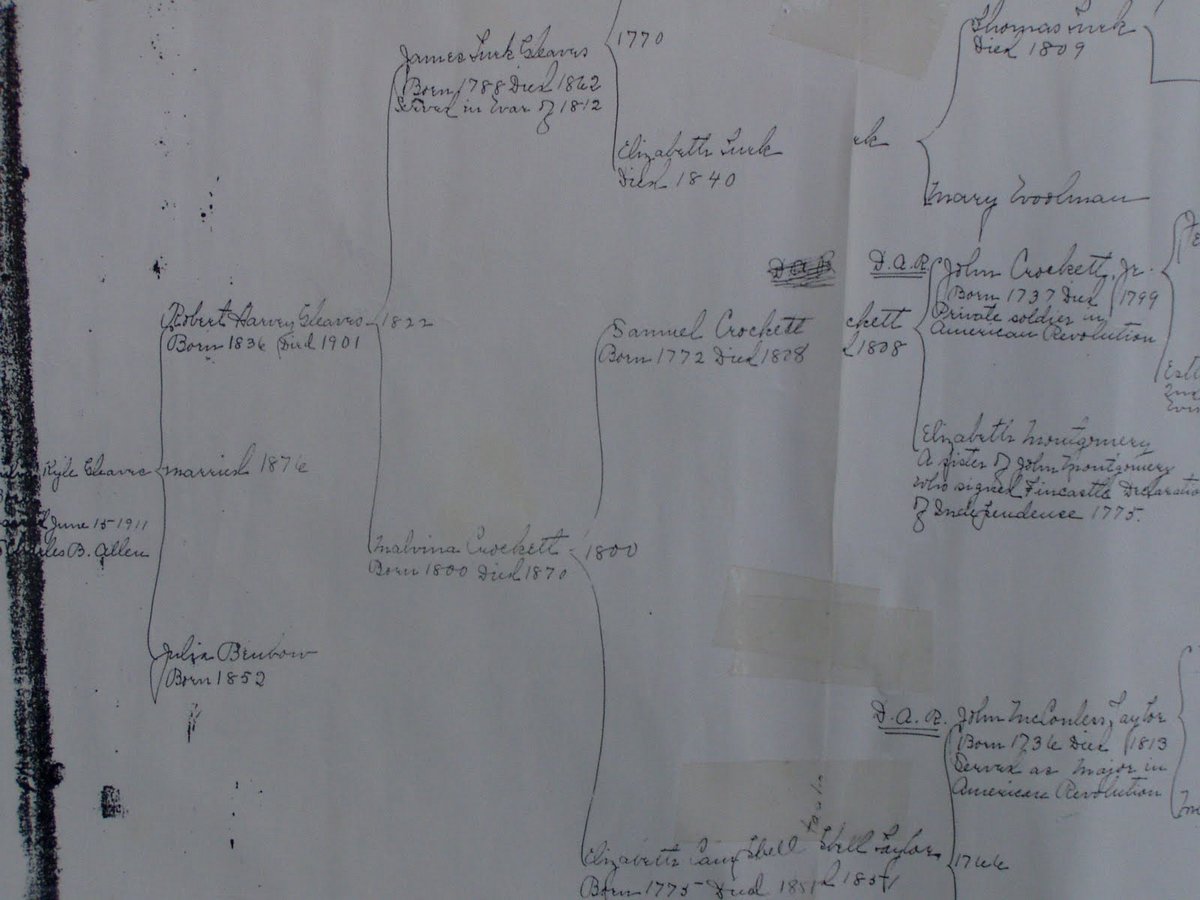 1770
James Turk Cleaves
Born 1788 Died 1862
Served in War of 1812
Elizabeth Turk
Died 1840
Thomas Turk
Died 1809
rk
Mary Woolman
D.A.R.
John Crockett, Jr.
Born 1737 Died 1799
Private soldier in
American Revolution
Robert Harvey Cleaves
Born 1836 Died 1901
1822
Samuel Crockett
Born 1772 Died 1808
ckett
1808
Elizabeth Montgomery
A sister of John Montgomery
who signed Fincastle Declaratio
of Independence 1775.
Kyle Cleaves
married 1876
June 15 1911
Charles B. Allen
Malvina Crockett
Born 1800 Died 1870
1800
Julia Benbow
Born 1852
D.A.R.
John Taylor
Born 1736 Died 1813
Served as Major in
American Revolution
Elizabeth Campbell
bell Taylor
Born 1775 Died 1851
1851
1766